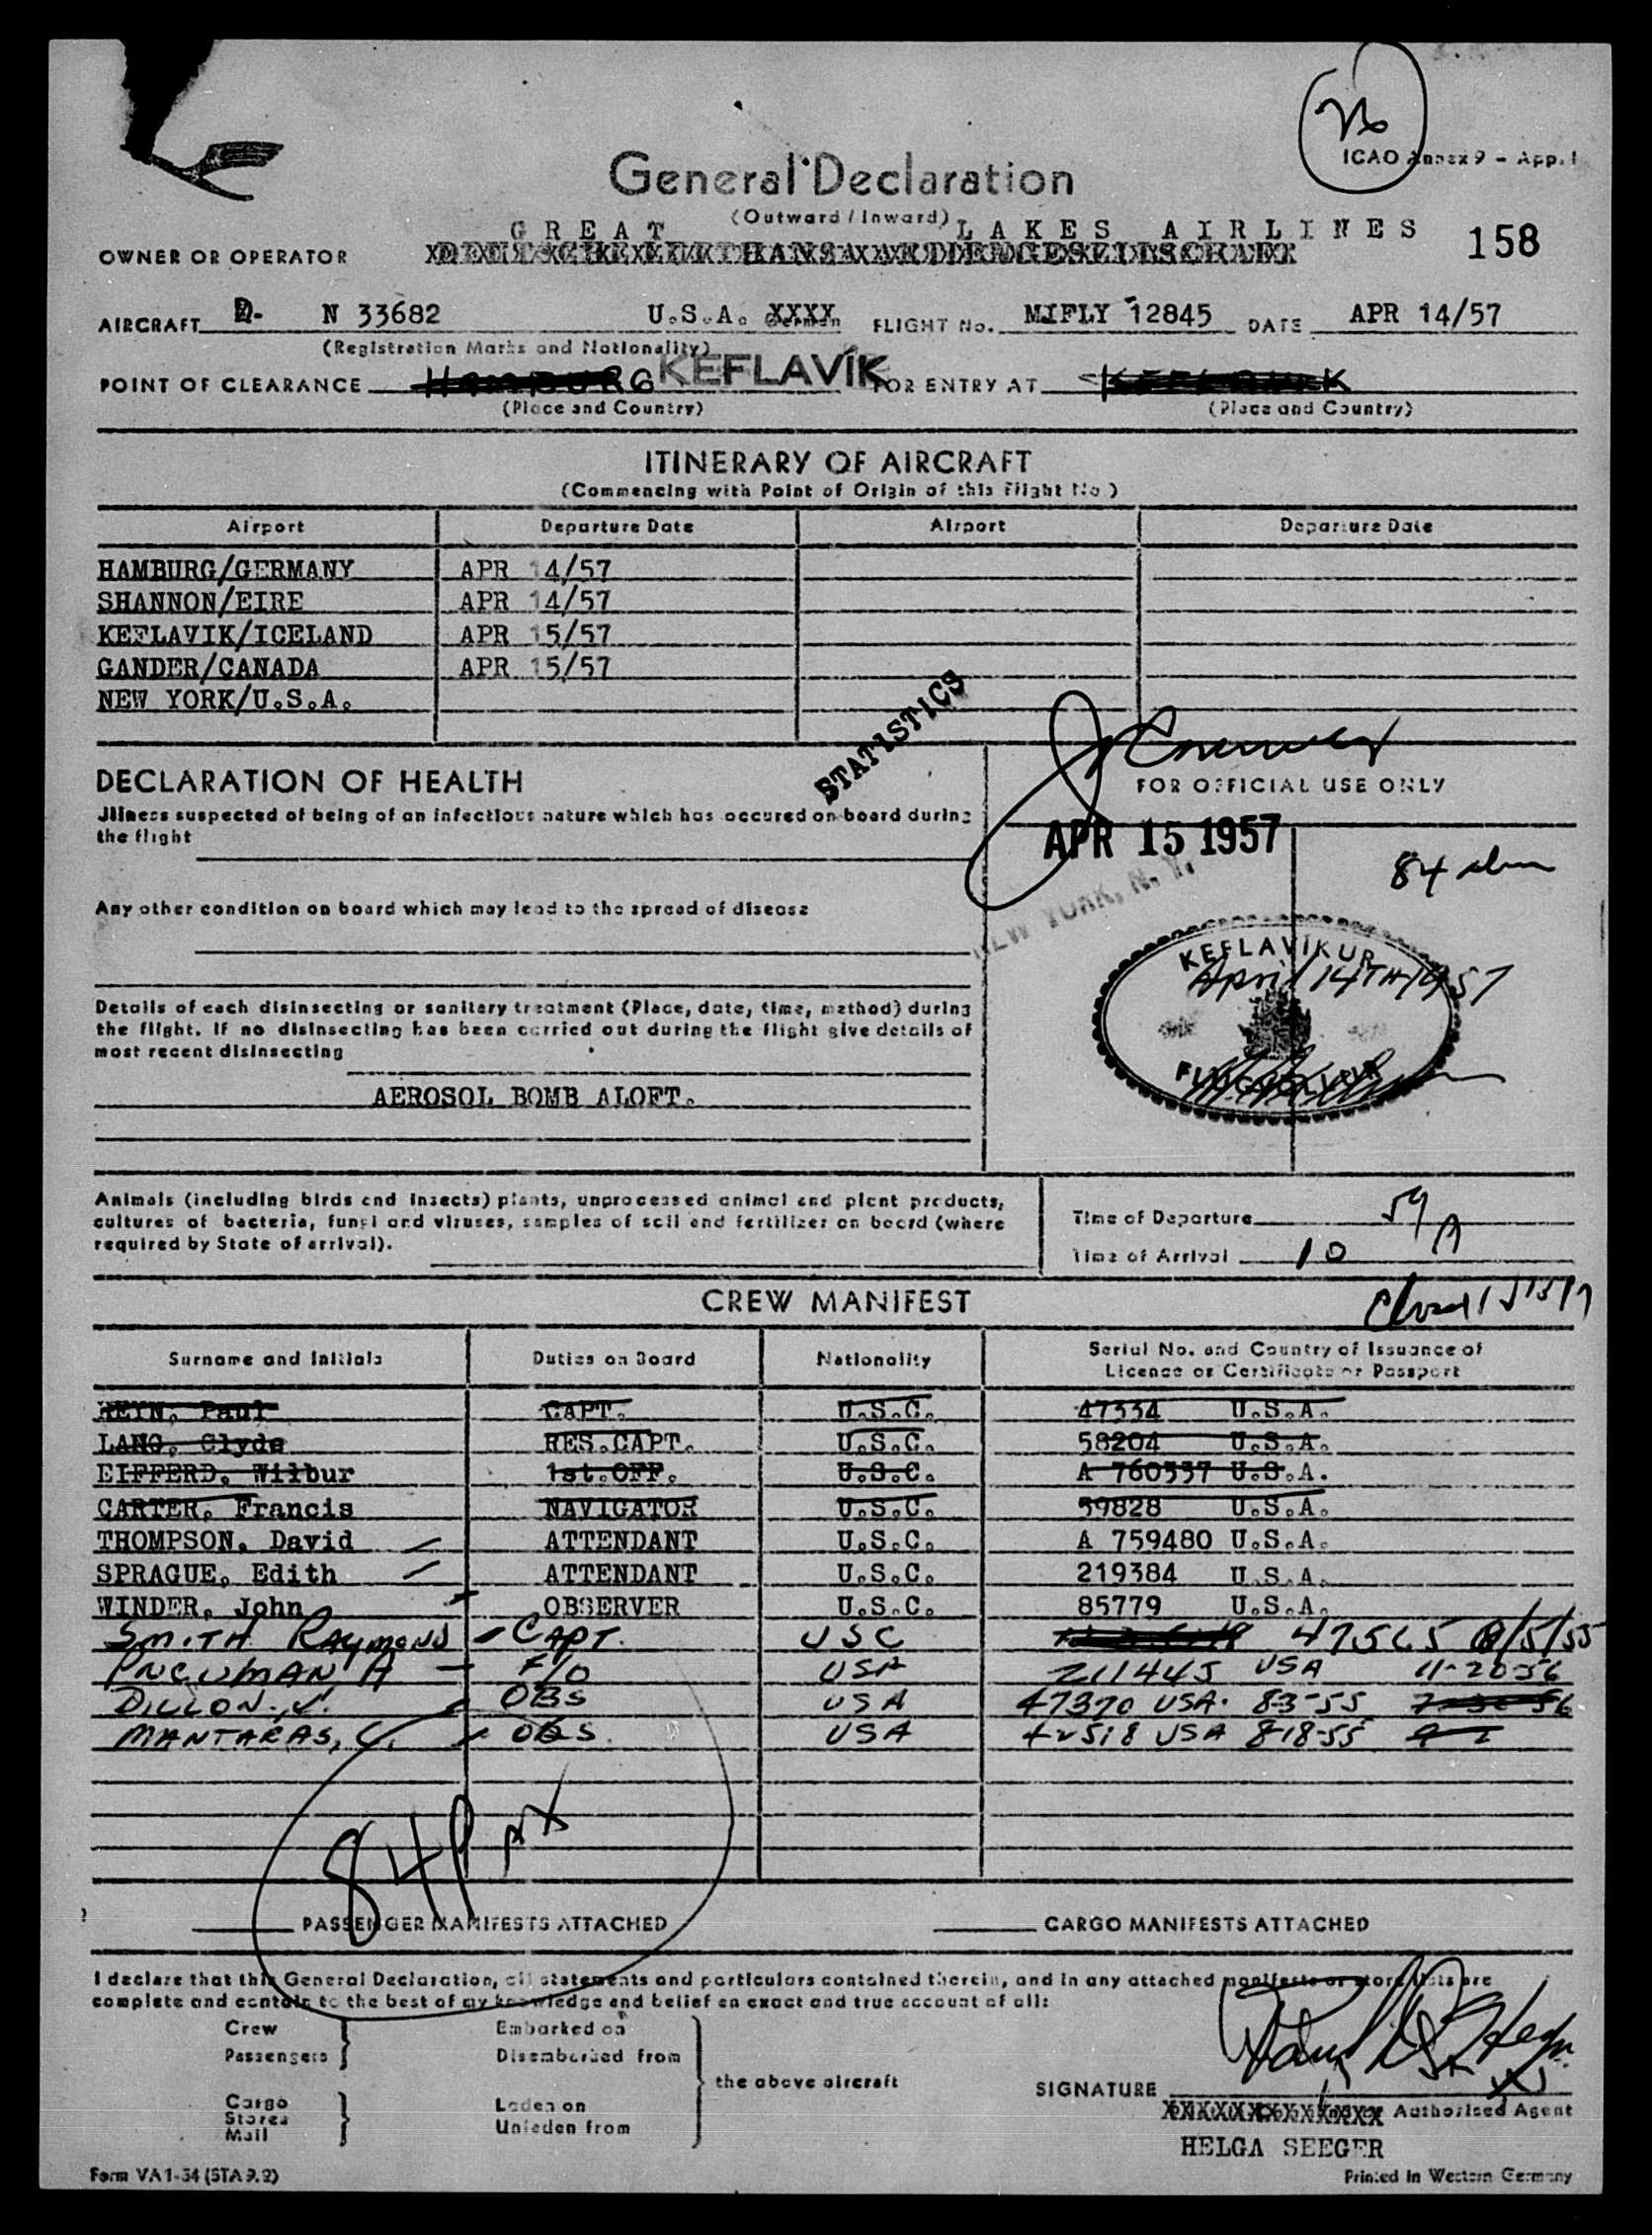 ICAO Annex 9 - App. 1
General Declaration
(Outward / Inward)
GREAT LAKES AIRLINES
158
OWNER OR OPERATOR
AIRCRAFT D- N 33682 U.S.A. XXXX German FLIGHT No. MIFLY 12845 DATE APR 14/57
(Registration Marks and Nationality)
POINT OF CLEARANCE HAMBURG KEFLAVÍK FOR ENTRY AT KEFLAVIK
(Place and Country) (Place and Country)
ITINERARY OF AIRCRAFT
(Commencing with Point of Origin of this Flight No.)
Airport Departure Date Airport Departure Date
HAMBURG/GERMANY APR 14/57
SHANNON/EIRE APR 14/57
KEFLAVIK/ICELAND APR 15/57
GANDER/CANADA APR 15/57
NEW YORK/U.S.A.
STATISTICS
DECLARATION OF HEALTH
Jllness suspected of being of an infectious nature which has occured on board during
the flight
Any other condition on board which may lead to the spread of disease
Details of each disinsecting or sanitary treatment (Place, date, time, method) during
the flight. If no disinsecting has been carried out during the flight give details of
most recent disinsecting
AEROSOL BOMB ALOFT.
FOR OFFICIAL USE ONLY
APR 15 1957
NEW YORK, N. Y.
84
KEFLAVÍKUR
April 14TH 1957
Animals (including birds and insects) plants, unprocessed animal and plant products,
cultures of bacteria, fungi and viruses, samples of soil and fertilizer on board (where
required by State of arrival).
Time of Departure 59 A
Time of Arrival 10
CREW MANIFEST
Surname and Initials Duties on Board Nationality Serial No. and Country of Issuance of
Licence or Certificate or Passport
HEYN, Paul CAPT. U.S.C. 47334 U.S.A.
LANG, Clyde RES.CAPT. U.S.C. 58204 U.S.A.
EIFFERD, Wilbur 1st.OFF. U.S.C. A 760337 U.S.A.
CARTER, Francis NAVIGATOR U.S.C. 59828 U.S.A.
THOMPSON, David ATTENDANT U.S.C. A 759480 U.S.A.
SPRAGUE, Edith ATTENDANT U.S.C. 219384 U.S.A.
WINDER, John OBSERVER U.S.C. 85779 U.S.A.
SMITH RAYMOND - CAPT. USC 47565 8/5/55
PNEUMAN A - F/O USA 211445 USA 11-20-56
DILLON, V. OBS USA 47370 USA. 8-3-55
MANTARAS, C. OBS. USA 42518 USA 8-18-55
84 Pax
PASSENGER MANIFESTS ATTACHED CARGO MANIFESTS ATTACHED
I declare that this General Declaration, all statements and particulars contained therein, and in any attached manifests or store lists are
complete and contain to the best of my knowledge and belief an exact and true account of all:
Crew Embarked on
Passengers Disembarked from
the above aircraft
Cargo Laden on
Stores
Mail Unladen from
SIGNATURE
Authorised Agent
HELGA SEEGER
Form VA 1-54 (STA 9.2) Printed in Western Germany